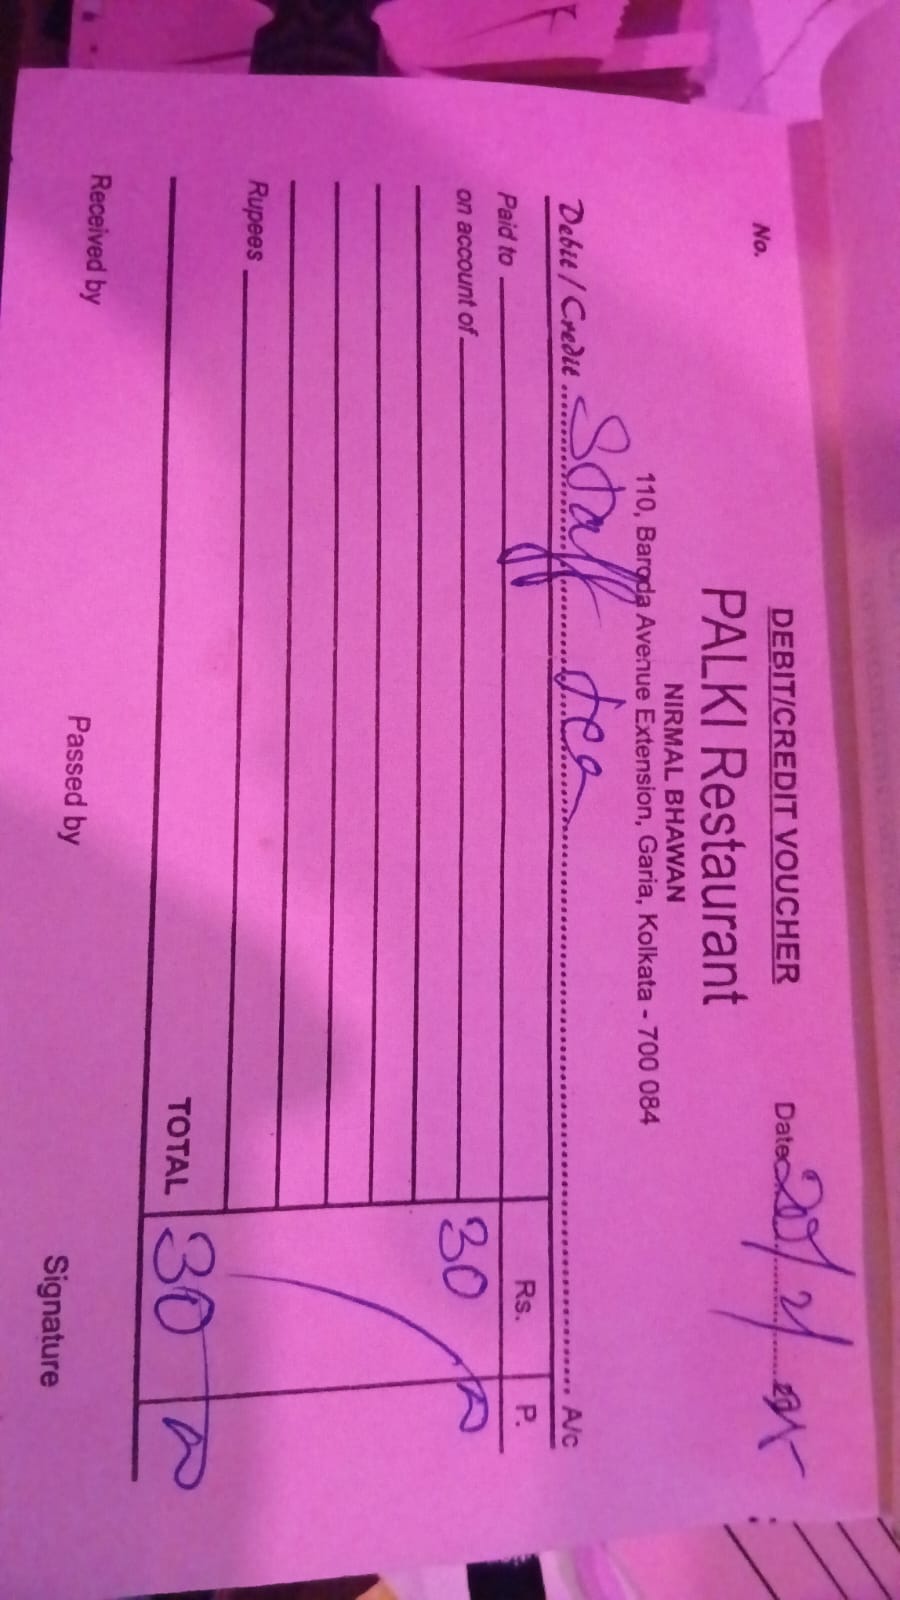 DEBIT/CREDIT VOUCHER
No. Date
PALKI Restaurant
NIRMAL BHAWAN
110, Baroda Avenue Extension, Garia, Kolkata - 700 084
Debit / Credit Staff tea A/c
Paid to Rs. P.
on account of 30
Rupees
TOTAL 30
Received by Passed by Signature